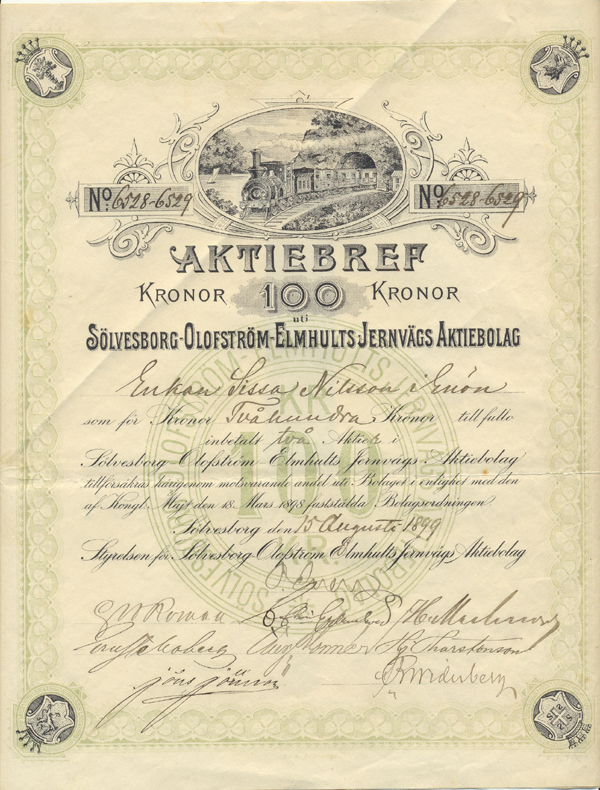 No. 6528-6529
No. 6528-6529
AKTIEBREF
KRONOR 100 KRONOR
uti
SÖLVESBORG-OLOFSTRÖM-ELMHULTS JERNVÄGS AKTIEBOLAG
Enkan Sissa Nilsson i
som för Kronor Tvåhundra Kronor till fullo
inbetalt två Aktier i
Sölvesborg Olofström Elmhults Jernvägs Aktiebolag
tillförsäkras härigenom motsvarande andel uti Bolaget i enlighet med den
af Kongl. Majt den 18. Mars 1898 fastställda Bolagsordningen.
Sölvesborg den 15 Augusti 1899
Styrelsen för Sölvesborg Olofström Elmhults Jernvägs Aktiebolag
Thorstenson
Jöns Jönsson
Widerberg